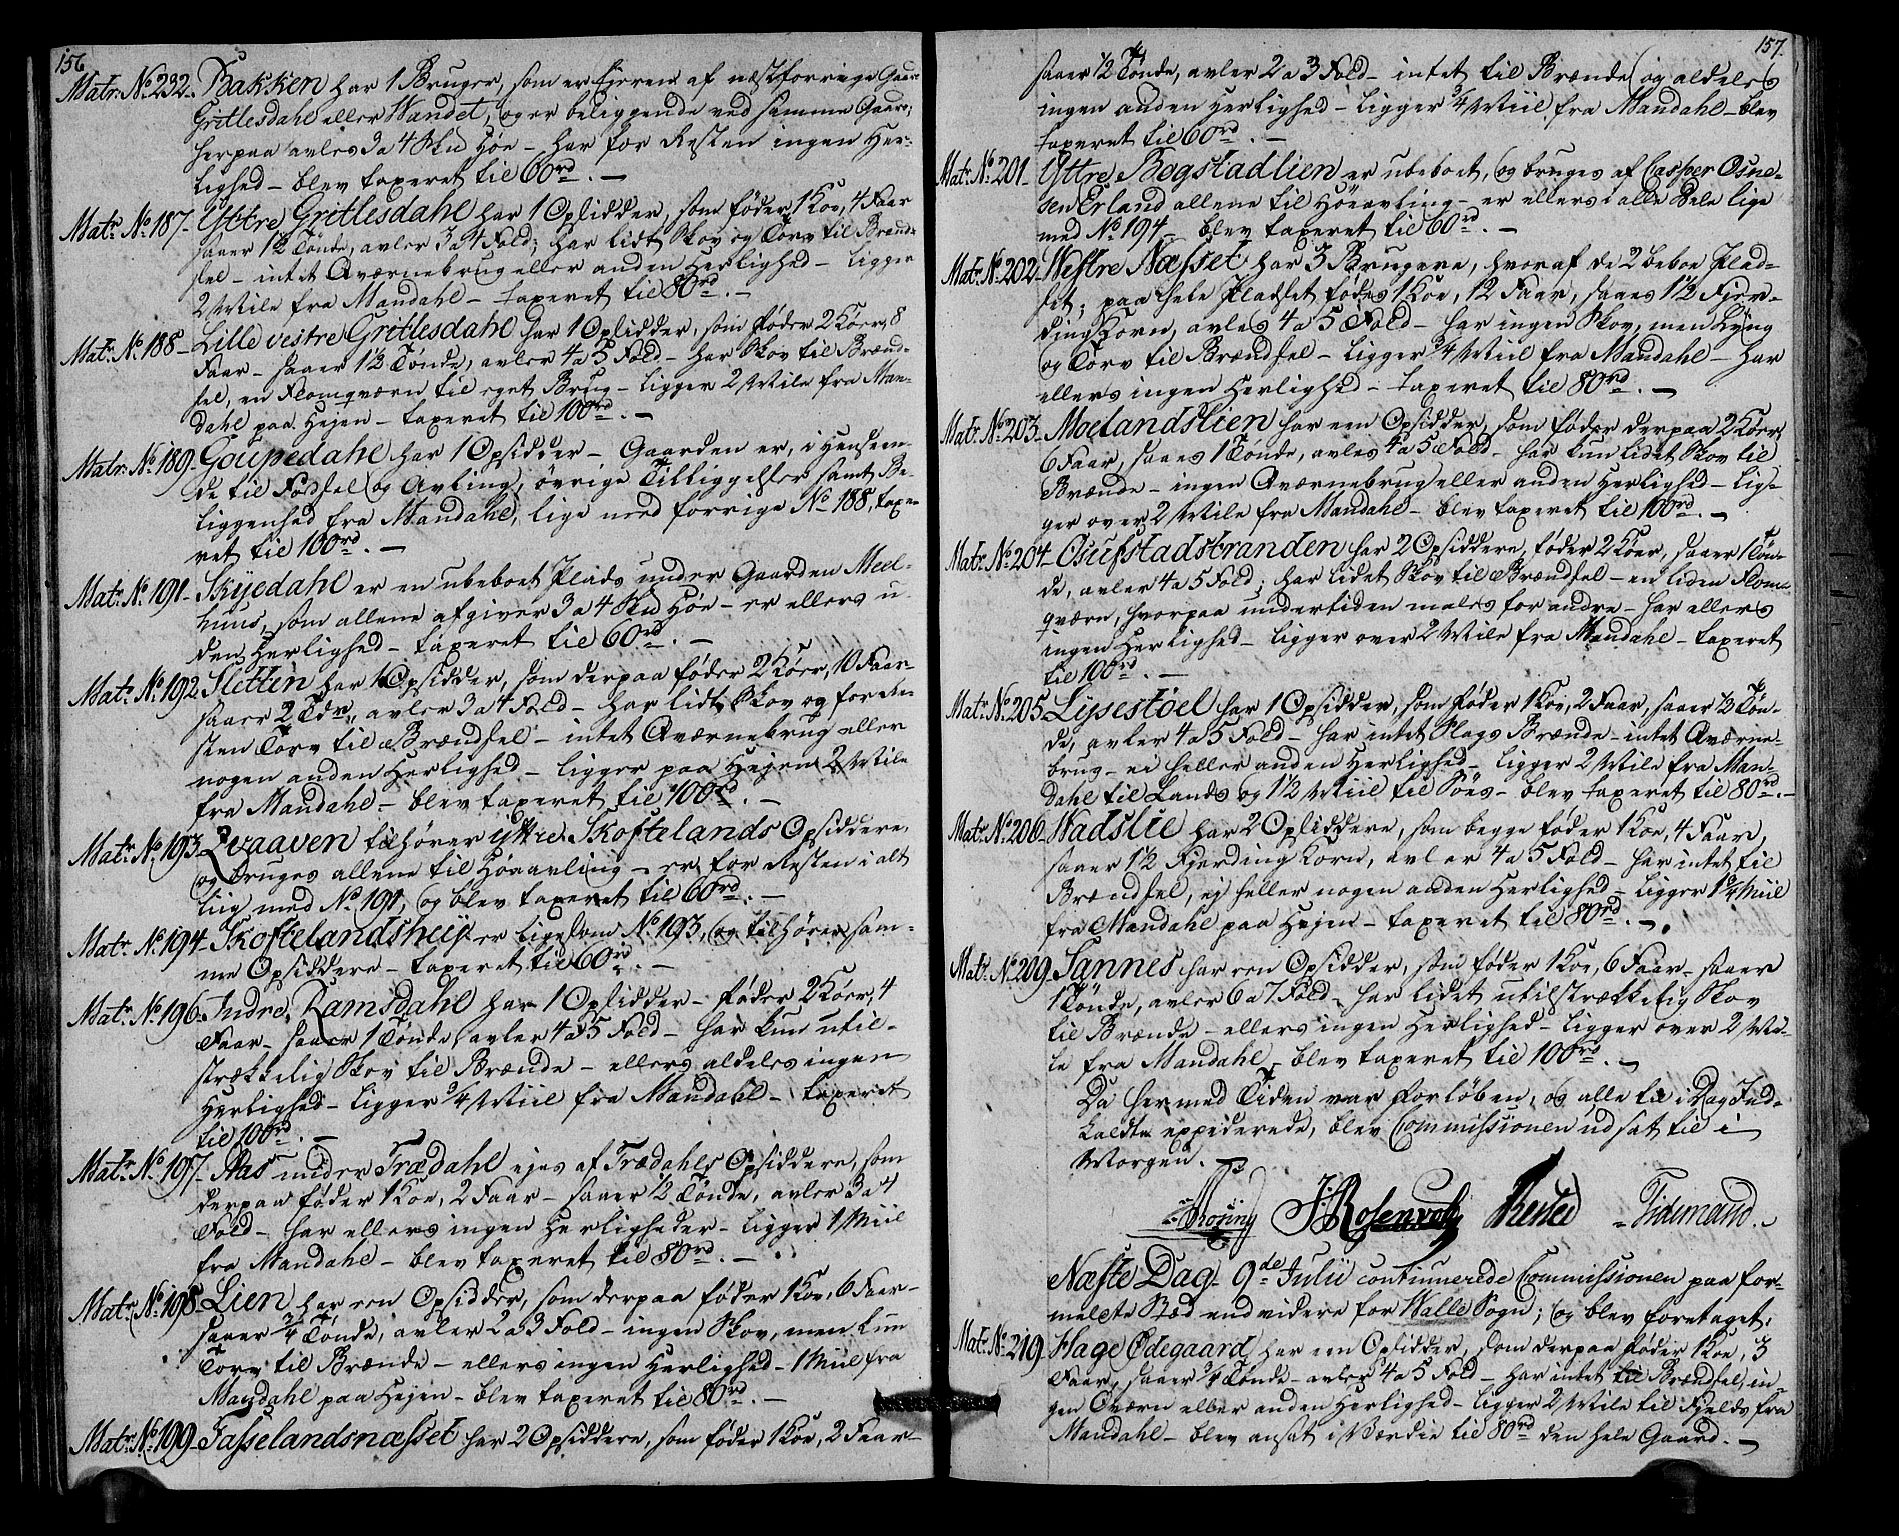 156
Matr: No 232. Bakken har 1 Bruger, som er Eieren af næstforrige Gaard
Gritlesdahl eller Wandet, og er beliggende ved samme Gaard;
herpaa avles 3 a 4 Skd Høe - har for Resten ingen Her-
lighed - blev taxeret til 60 rd. -
Matr. No 187. Yttre Gritlesdahl har 1 Opsidder, som føder 1 Koe, 4 Faar
saaer 1½ Tønde, avler 3 a 4 Fold; har lidt Skov og Torv til Brænd-
sel - intet Qværnebrug eller anden Herlighed - ligger
2 Mile fra Mandahl - taxeret til 80 rd. -
Matr. No 188. Lille vestre Gritlesdahl har 1 Opsidder, som føder 2 Køer, 8
Faar - saaer 1½ Tønde, avler 4 a 5 Fold - har Skov til Brænd-
sel, en Flomqværn til eget Brug - ligger 2 Mile fra Man-
dahl paa Heien - taxeret til 100 rd. -
Matr. No 189. Goupedahl har 1 Opsidder - Gaarden er, i Henseen-
de til Fødsel og Avling, øvrige Tilliggelser samt Be-
liggenhed fra Mandahl, lige med forrige No 188, taxe-
ret til 100 rd. -
Matr. No 191. Skyedahl er en ubeboet Plads under Gaarden Meel-
huus, som allene afgiver 3 a 4 Skd Høe - er ellers u-
den Herlighed - taxeret til 60 rd. -
Matr. No 192. Sletten har 1 Opsidder, som derpaa føder 2 Køer, 10 Faar
saaer 2 Tdr, avler 3 a 4 Fold - har lidt Skov og for Re-
sten Torv til Brændsel - intet Qværnebrug eller
nogen anden Herlighed - ligger paa Heien 2 Mile
fra Mandahl - blev taxeret til 100 rd. -
Matr. No 193. Qvaaven tilhører yttre Skoftelands Opsiddere,
og bruges allene til Høeavling - er for Resten i alt
liig med No 191, og blev taxeret til 60 rd. -
Matr. No 194. Skoftelandsheij er ligesom No 193, og tilhører sam-
me Opsiddere - taxeret til 60 rd. -
Matr. No 196. Indre Ramsdahl har 1 Opsidder - føder 2 Køer, 4
Faar - saaer 1 Tønde, avler 4 a 5 Fold - har kun util-
strækkelig Skov til Brænde - ellers aldeles ingen
Herlighed - ligger ¾ Miil fra Mandahl - taxeret
til 100 rd. -
Matr. No 197. Aas under Trædahl ejes af Trædahls Opsiddere, som
derpaa føder 1 Koe, 2 Faar - saaer ½ Tønde, avler 3 a 4
Fold - har ellers ingen Herligheder - ligger 1 Miil
fra Mandahl - blev taxeret til 80 rd. -
Matr. No 198. Lien har een Opsidder, som derpaa føder 1 Koe, 6 Faar -
saaer ¾ Tønde, avler 2 a 3 Fold - ingen Skov, men kun
Torv til Brænde - ellers ingen Herlighed - 1 Miil fra
Mandahl paa Heien - blev taxeret til 80 rd. -
Matr. No 199. Fasselandsnæsset har 2 Opsiddere, som føder 1 Koe, 2 Faar -
157.
saaer ½ Tønde, avler 2 a 3 Fold - intet til Brænde og aldeles
ingen anden Herlighed - ligger ¾ Miil fra Mandahl - blev
taxeret til 60 rd. -
Matr. No 201. Yttre Bogstadlien er ubeboet, og bruges af Casper Osne-
sen Erland allene til Høeavling - er ellers i alle Dele lige
med No 194 - blev taxeret til 60 rd. -
Matr. No 202. Westre Næsset har 3 Brugere, hvoraf de 2 beboe Plad-
set; paa hele Pladset fødes 1 Koe, 12 Faar, saaes 1½ Fjer-
ding Korn, avles 4 a 5 Fold - har ingen Skov, men Lyng
og Torv til Brændsel - ligger ¾ Miil fra Mandahl - har
ellers ingen Herlighed - taxeret til 80 rd. -
Matr. No 203. Moelandslien har een Opsidder, som føder derpaa 2 Køer
6 Faar, saaes 1 Tønde, avles 4 a 5 Fold - har kun lidet Skov til
Brænde - ingen Qværnebrug eller anden Herlighed - lig-
ger over 2 Mile fra Mandahl - blev taxeret til 100 rd. -
Matr. No 204. Osufstadstranden har 2 Opsiddere, føder 2 Køer, saaer 1 Tøn-
de, avler 4 a 5 Fold; har lidet Skov til Brændsel - en liden Flom-
qværn, hvorpaa undertiden males for andre - har ellers
ingen Herlighed - ligger over 2 Mile fra Mandahl - taxeret
til 100 rd. -
Matr. No 205. Lysestøel har 1 Opsidder, som føder 1 Koe, 2 Faar, saaer ½ Tøn-
de, avler 4 a 5 Fold - har intet Slags Brænde - intet Qværne-
brug - ei heller anden Herlighed - ligger 2 Mile fra Man-
dahl til Lands og 1½ Miil til Søes - blev taxeret til 80 rd. -
Matr. No 206. Wadslie har 2 Opsiddere, som begge føder 1 Koe, 4 Faar,
saaer 1½ Fjerding Korn, avler 4 a 5 Fold - har intet til
Brændsel, ej heller nogen anden Herlighed - ligger 1¼ Miil
fra Mandahl paa Heien - taxeret til 80 rd. -
Matr. No 209. Sannes har een Opsidder, som føder 1 Koe, 6 Faar - saaer
1 Tønde, avler 6 a 7 Fold - har lidet utilstrækkelig Skov
til Brænde - ellers ingen Herlighed - ligger over 2 Mi-
le fra Mandahl - blev taxeret til 100 rd. -
Da hermed Tiden var forløben, og alle til i Dag Ind-
kaldte expederede, blev Commissionen udsat til i
Morgen. -
J Rosenvold Tidemand.
Næste Dag - 9de Julii continuerede Commissionen paa for-
meldte Sted end videre for Halle Sogn; og blev foretaget:
Matr. No 219. Hage Ødegaard, har een Opsidder, som derpaa føder 1 Koe, 3
Faar, saaer ¾ Tønde - avler 4 a 5 Fold - har intet til Brændsel, in-
gen Qværn eller anden Herlighed - ligger 2 Mile til Fjelds fra
Mandahl - blev ansat i Værdie til 80 rd den hele Gaard. -